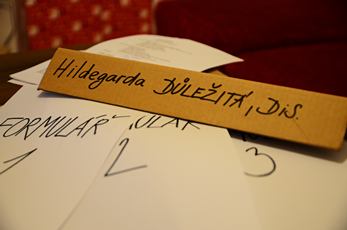 Hildegarda DŮLEŽITÁ, DiS.
FORMULÁŘ
1
2
3